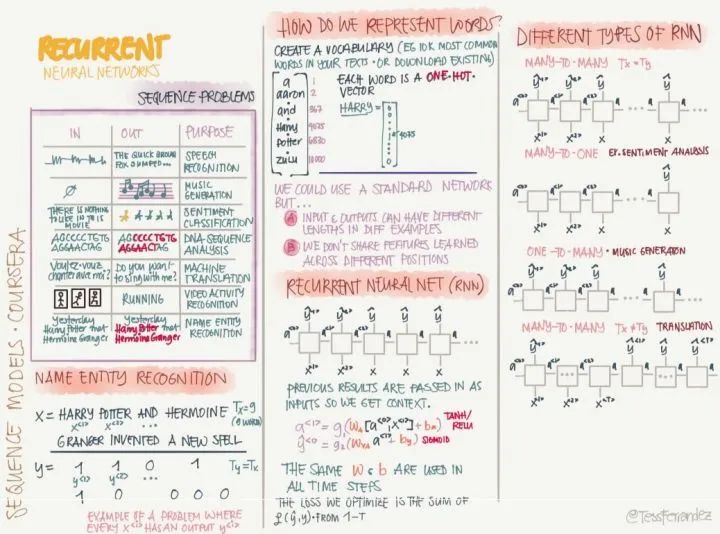 RECURRENT
NEURAL NETWORKS
SEQUENCE PROBLEMS
IN OUT PURPOSE
THE QUICK BROWN FOX JUMPED... SPEECH RECOGNITION
MUSIC GENERATION
THERE IS NOTHING TO LIKE IN THIS MOVIE SENTIMENT CLASSIFICATION
AGCCCCTGTG AGGAACTAG AGCCCCTGTG AGGAACTAG DNA-SEQUENCE ANALYSIS
Voulez-vouz chanter avec moi? Do you want to sing with me? MACHINE TRANSLATION
RUNNING VIDEO ACTIVITY RECOGNITION
Yesterday Harry Potter met Hermoine Granger Yesterday Harry Potter met Hermoine Granger NAME ENTITY RECOGNITION
NAME ENTITY RECOGNITION
X = HARRY POTTER AND HERMOINE Tx=9
x<1> x<2> x<3> ... (9 WORDS)
GRANGER INVENTED A NEW SPELL
y = 1 1 0 1 Ty=Tx
y<1> y<2> ...
1 0 0 0 0
EXAMPLE OF A PROBLEM WHERE
EVERY X<i> HAS AN OUTPUT y<i>
SEQUENCE MODELS · COURSERA
HOW DO WE REPRESENT WORDS?
CREATE A VOCABULARY (EG 10K MOST COMMON
WORDS IN YOUR TEXTS · OR DOWNLOAD EXISTING)
a 1
aaron 2
and 367
Harry 4075
Potter 6830
zulu 10000
EACH WORD IS A ONE·HOT·
VECTOR
HARRY =
4075
WE COULD USE A STANDARD NETWORK
BUT...
A INPUT & OUTPUTS CAN HAVE DIFFERENT
LENGTHS IN DIFF EXAMPLES
B WE DON'T SHARE FEATURES LEARNED
ACROSS DIFFERENT POSITIONS
RECURRENT NEURAL NET (RNN)
PREVIOUS RESULTS ARE PASSED IN AS
INPUTS SO WE GET CONTEXT.
TANH/
RELU
SIGMOID
THE SAME W & b ARE USED IN
ALL TIME STEPS
THE LOSS WE OPTIMIZE IS THE SUM OF
ℒ(ŷ,y) · FROM 1-T
DIFFERENT TYPES OF RNN
MANY·TO·MANY Tx=Ty
MANY·TO·ONE EX. SENTIMENT ANALYSIS
ONE·TO·MANY · MUSIC GENERATION
MANY·TO·MANY Tx≠Ty TRANSLATION
@TessFerrandez